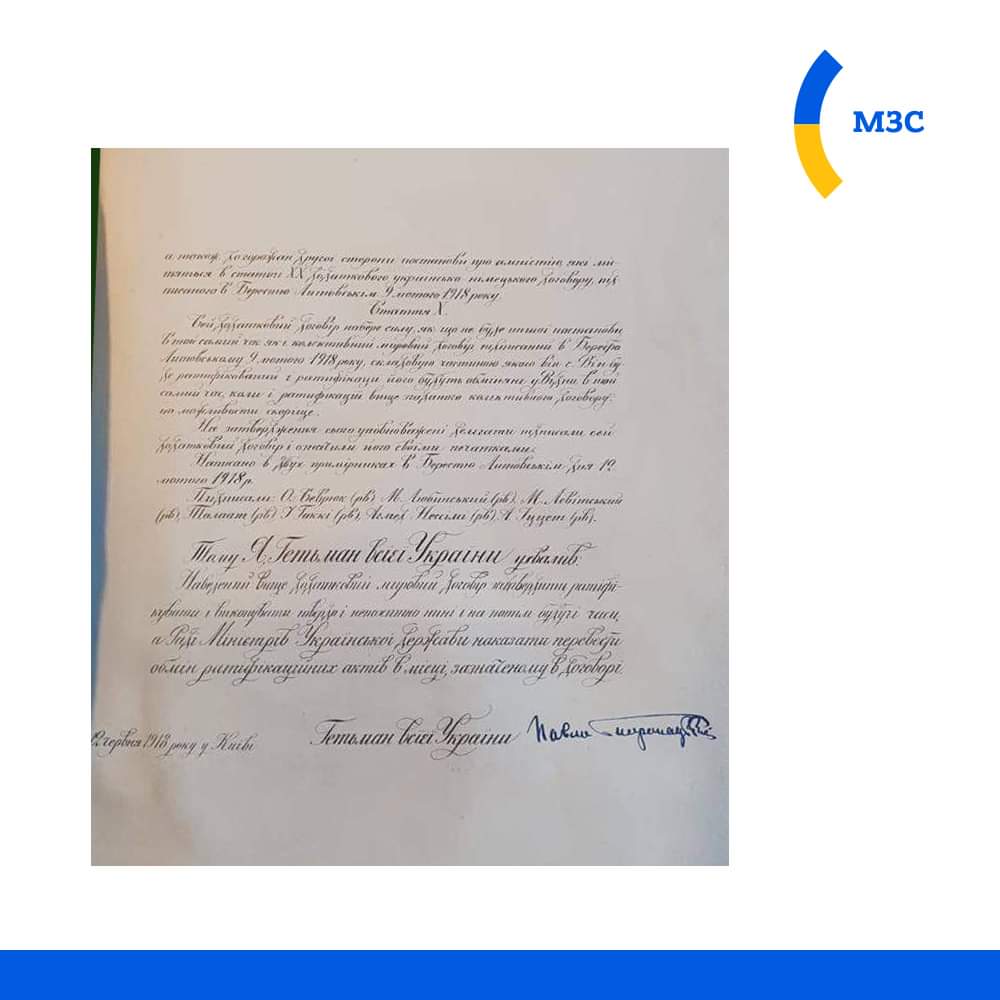 МЗС
а також догоражан другої сторони постанови про амністію, які мі-
стяться в статті XX додаткового українсько-німецького договору, під-
писаного в Берестю Литовськім 9 лютого 1918 року.
Стаття X.
Сей додатковий договір набере силу, як що не буде иншої постанови
в той самий час як і колективний мировий договір підписаний в Берестю
Литовському 9 лютого 1918 року, складовую частиною якого він є. Він бу-
де ратифікований і ратифікації його будуть обміняні у Відни в той
самий час, коли і ратифікацій вище згаданого колєктивного договору,
по можливости скорше.
На затвердження сього уповноважені делєгати підписали сей
додатковий договір і označили його своїми печатками.
Написано в двух примірниках в Берестю Литовськім дня 12
лютого 1918 р.
Підписали: О. Севрюк (рв), М. Любинський (рв), М. Левитський
(рв), Талаат (рв) І. Гаккі (рв), Ахмед Нессімі (рв), А. Іццет (рв).
Тому Я, Гетьман всієї України ухвалив:
Наведений вище додатковий мировий договір затвердити ратифі-
кувати і виконувати твердо і непохитно нині і на потім будучі часи,
а Раді Міністрів Української Держави наказати перевести
обмін ратификаційних актів в місці, зазначеному в договорі.
2 червня 1918 року у Київі
Гетьман всієї України Павло Скоропадський